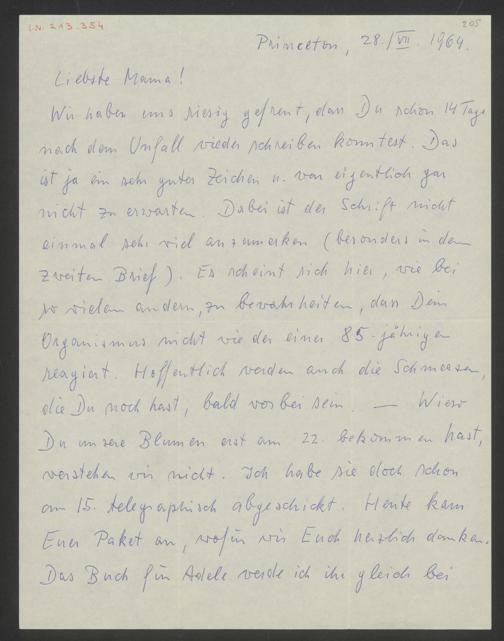 I.N. 213.354
205
Princeton, 28./VII. 1964.
Liebste Mama!
Wir haben uns riesig gefreut, dass Du schon 14 Tage
nach dem Unfall wieder schreiben konntest. Das
ist ja ein sehr gutes Zeichen u. war eigentlich gar
nicht zu erwarten. Dabei ist der Schrift nicht
einmal sehr viel anzumerken (besonders in dem
zweiten Brief). Es scheint sich hier, wie bei
so vielem andern, zu bewahrheiten, dass Dein
Organismus nicht wie der einer 85-jährigen
reagiert. Hoffentlich werden auch die Schmerzen,
die Du noch hast, bald vorbei sein. — Wieso
Du unsere Blumen erst am 22. bekommen hast,
verstehen wir nicht. Ich habe sie doch schon
am 15. telegraphisch abgeschickt. Heute kam
Euer Paket an, wofür wir Euch herzlich danken.
Das Buch für Adele werde ich ihr gleich bei